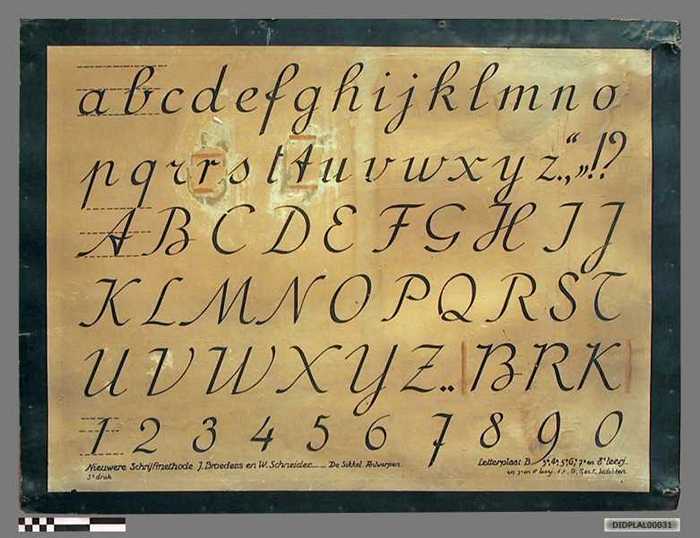 a b c d e f g h i j k l m n o
p q r r s t t u v w x y z . , “ „ ! ?
A B C D E F G H I J
K L M N O P Q R S T
U V W X Y Z .. B R K
1 2 3 4 5 6 7 8 9 0
Nieuwere Schrijfmethode J. Broeders en W. Schneider De Sikkel Antwerpen Letterplaat B
3e druk
DIDPLAL00031